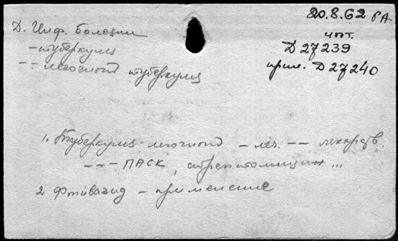 20.8.62 г А.
Д. Инф. болезни
чпт.
Д 27239
– туберкулез
прил. Д 27240
– легочной туберкулез
1. Туберкулез легочной – леч. – – лекарств.
– – – ПАСК, стрептомицин ...
2. Фтивазид – применение